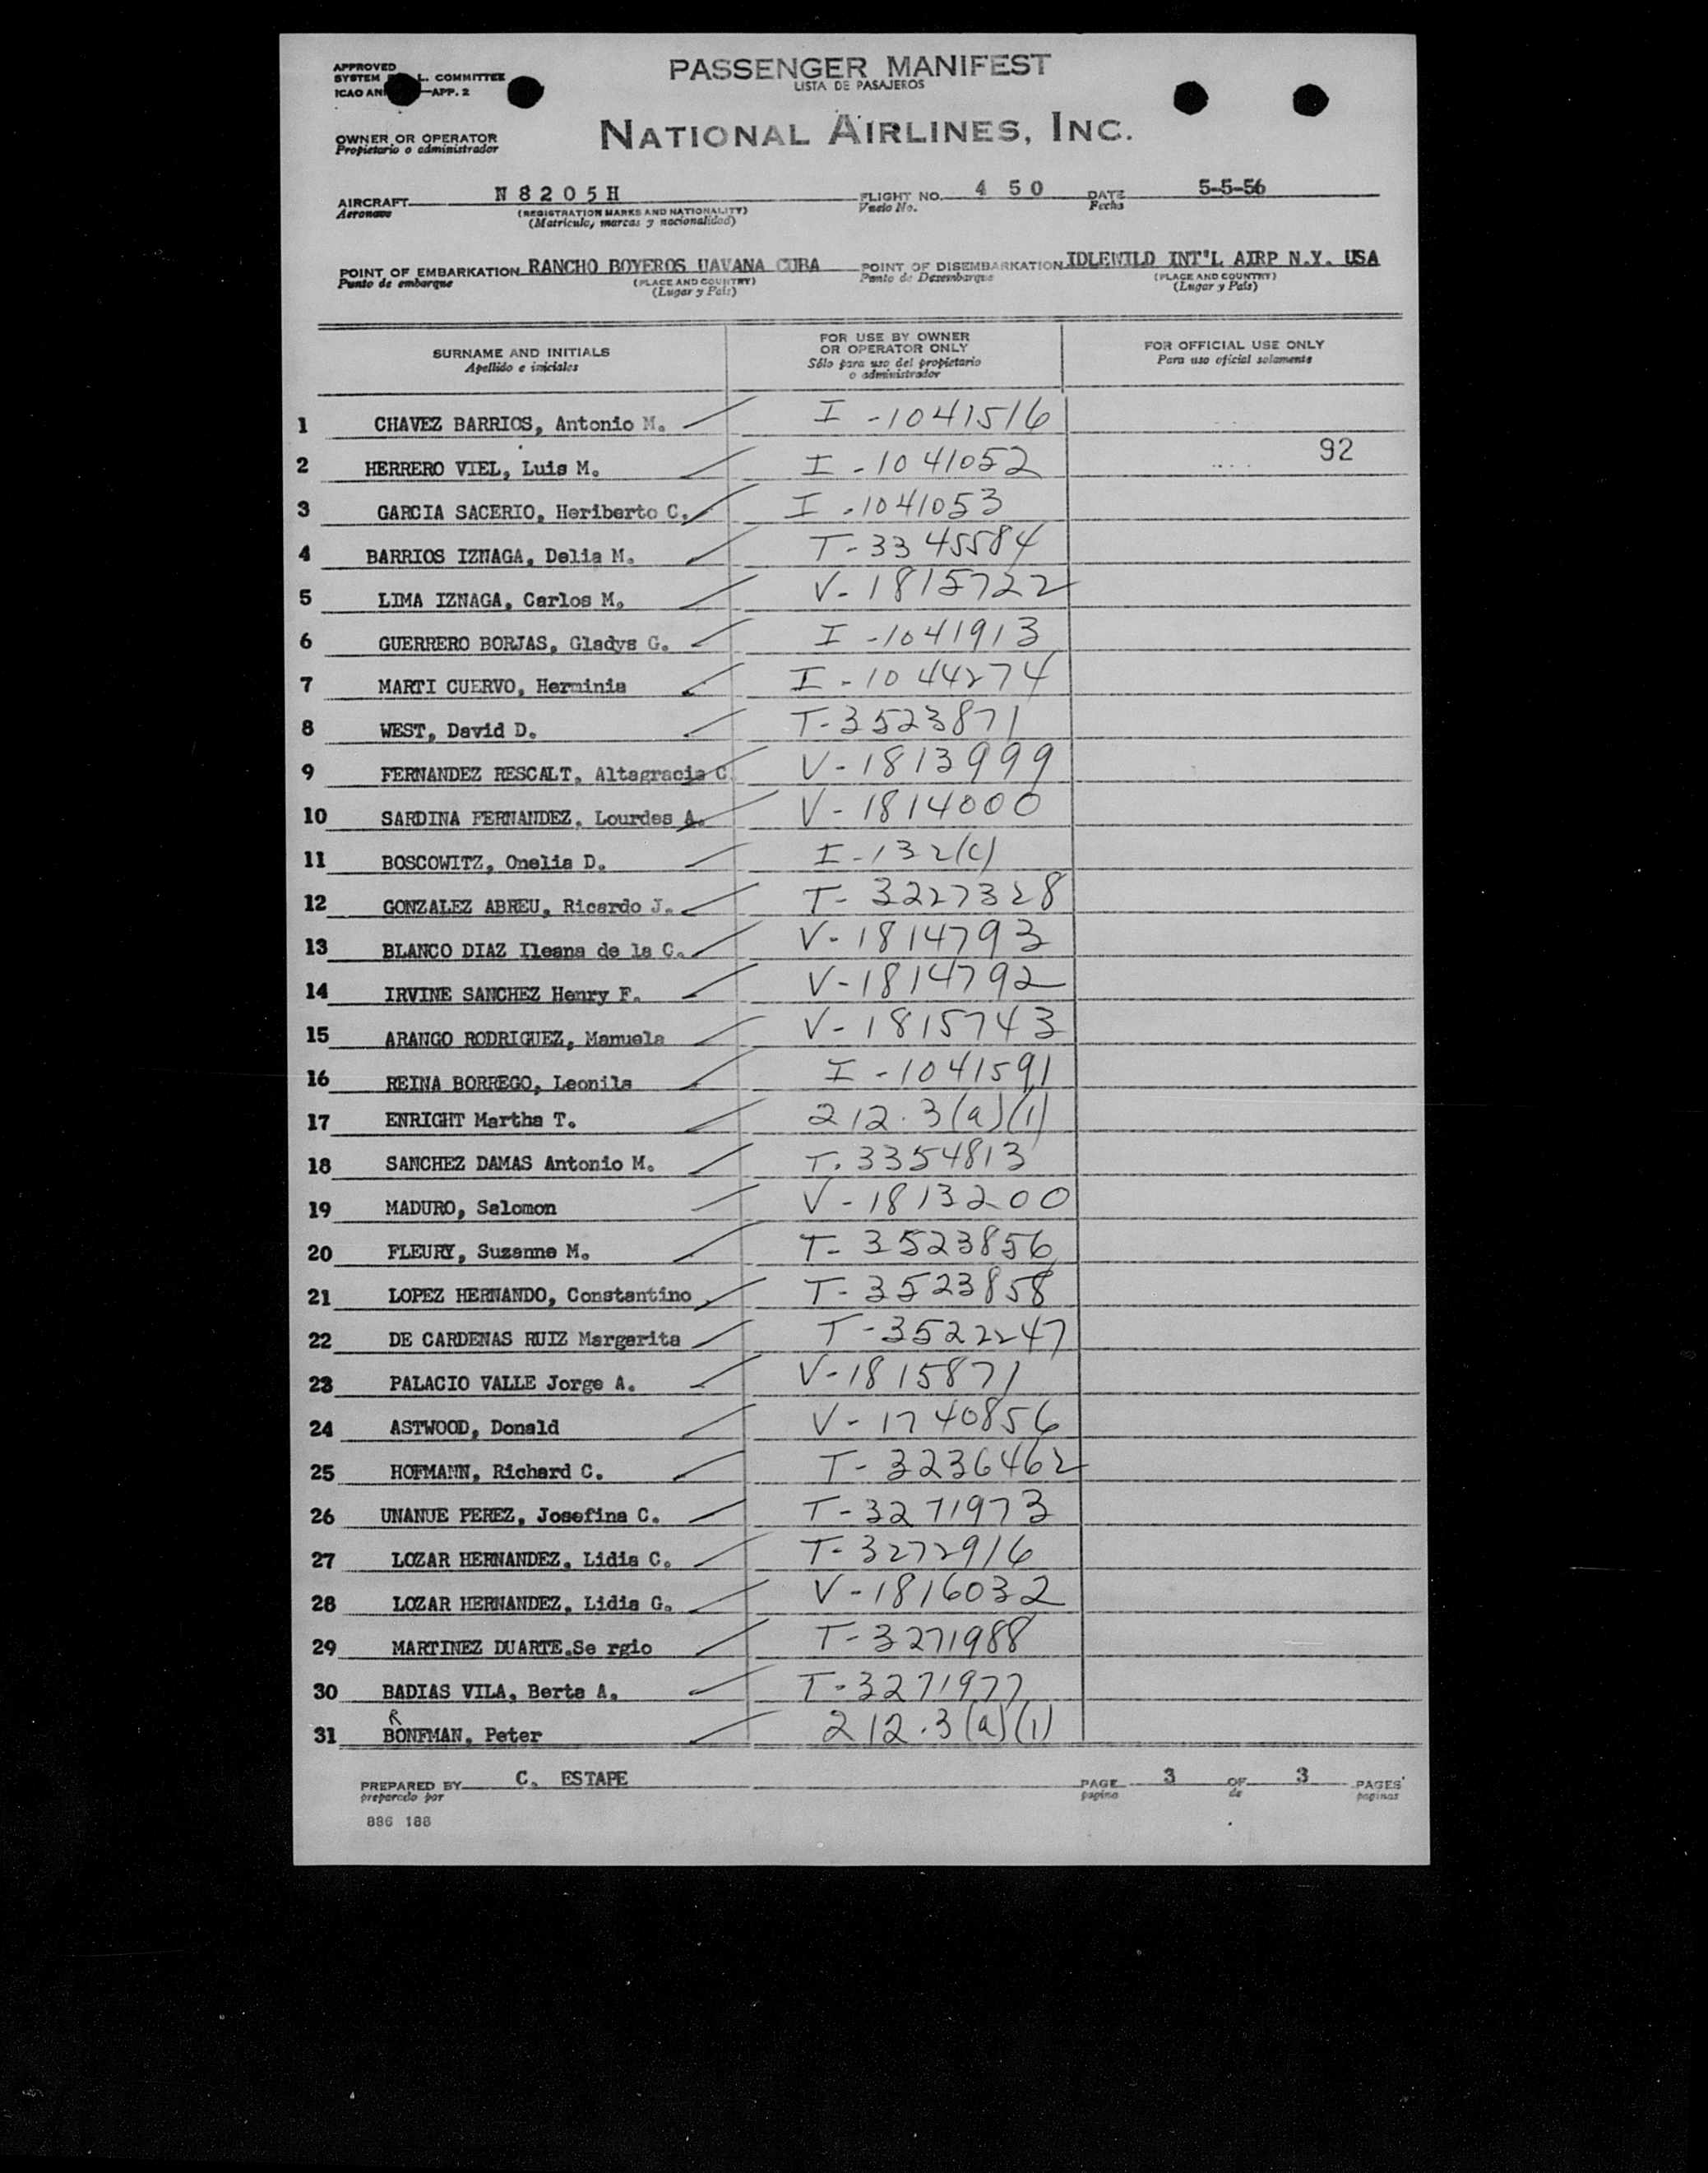 APPROVED
SYSTEM L. COMMITTEE
ICAO AN —APP. 2
PASSENGER MANIFEST
LISTA DE PASAJEROS
OWNER OR OPERATOR
Propietario o administrador
NATIONAL AIRLINES, INC.
AIRCRAFT N 8 2 0 5 H FLIGHT NO. 4 5 0 DATE 5-5-56
Aeronave (REGISTRATION MARKS AND NATIONALITY) Vuelo No. Fecha
(Matricula, marcas y nacionalidad)
POINT OF EMBARKATION RANCHO BOYEROS UAVANA CUBA POINT OF DISEMBARKATION IDLEWILD INT'L AIRP N.Y. USA
Punto de embarque (PLACE AND COUNTRY) Punto de Desembarque (PLACE AND COUNTRY)
(Lugar y País) (Lugar y País)
SURNAME AND INITIALS
Apellido e iniciales
FOR USE BY OWNER
OR OPERATOR ONLY
Sólo para uso del propietario
o administrador
FOR OFFICIAL USE ONLY
Para uso oficial solamente
1 CHAVEZ BARRIOS, Antonio M. I -1041516
92
2 HERRERO VIEL, Luis M. I -1041052
3 GARCIA SACERIO, Heriberto C. I -1041053
4 BARRIOS IZNAGA, Delia M. T-3345584
5 LIMA IZNAGA, Carlos M. V-1815722
6 GUERRERO BORJAS, Gladys G. I -1041913
7 MARTI CUERVO, Herminia I -1044274
8 WEST, David D. T-3523871
9 FERNANDEZ RESCALT, Altagracia C. V-1813999
10 SARDINA FERNANDEZ, Lourdes A. V-1814000
11 BOSCOWITZ, Onelia D. I-132(c)
12 GONZALEZ ABREU, Ricardo J. T-3227328
13 BLANCO DIAZ Ileana de la C. V-1814793
14 IRVINE SANCHEZ Henry F. V-1814792
15 ARANGO RODRIGUEZ, Manuela V-1815743
16 REINA BORREGO, Leonila I -1041591
17 ENRIGHT Martha T. 212.3(a)(1)
18 SANCHEZ DAMAS Antonio M. T.3354813
19 MADURO, Salomon V-1813200
20 FLEURY, Suzanne M. T-3523856
21 LOPEZ HERNANDO, Constantino T-3523858
22 DE CARDENAS RUIZ Margarita T-3522247
23 PALACIO VALLE Jorge A. V-1815871
24 ASTWOOD, Donald V-1740856
25 HOFMANN, Richard C. T-3236462
26 UNANUE PEREZ, Josefina C. T-3271973
27 LOZAR HERNANDEZ, Lidia C. T-3272916
28 LOZAR HERNANDEZ, Lidia G. V-1816032
29 MARTINEZ DUARTE,Se rgio T-3271988
30 BADIAS VILA, Berta A. T-3271977
R
31 BONFMAN, Peter 212.3(a)(1)
PREPARED BY C. ESTAPE PAGE 3 OF 3 PAGES
preparado por pagina de paginas
886 188